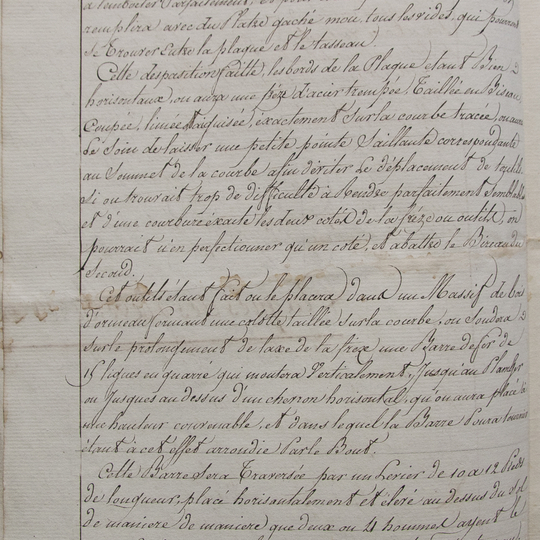 remplira avec du Platre gaché mou, tous les vides, qui pourront
se trouver Entre la plaque et le tasseau.
Cette desposition faitte, les bords de la Plaque etant Bien
horisontaux, on aura une freze d'acier trempée, Taillée en Biseau,
Coupée, limée et aiguisée, exactement sur la courbe tracée, on aura
Le soin de laisser une petite pointe Saillante correspondante
au Sommet de la courbe afin d'eviter Le déplacement de l'outil.
Si on trouvait trop de difficulté à Rendre parfaitement Semblable
et d'une courbure exacte les deux cotés de la freze ou outil, on
pourrait n'en perfectionner qu'un coté, et abattre le Biseau du
Second.
Cet outils étant fait on le placera dans un Massif de bois
d'ormeau formant une calotte taillée sur la courbe, on Soudera
sur le prolongement de l'axe de la freze une Barre de fer de
15 lignes en quarré qui montera Verticalement, jusqu'au Plancher
ou jusques au dessus d'un chevron horisontal, qu'on aura placé à
une hauteur convenable, et dans lequel la Barre Poura tourner
étant à cet effet arrondie Par le Bout.
Cette Barre Sera Traversée par un Levier de 10 a 12 Pieds
de longueur, placé horisontalement et élevé au dessus du
de maniere de maniere que deux ou 4 hommes